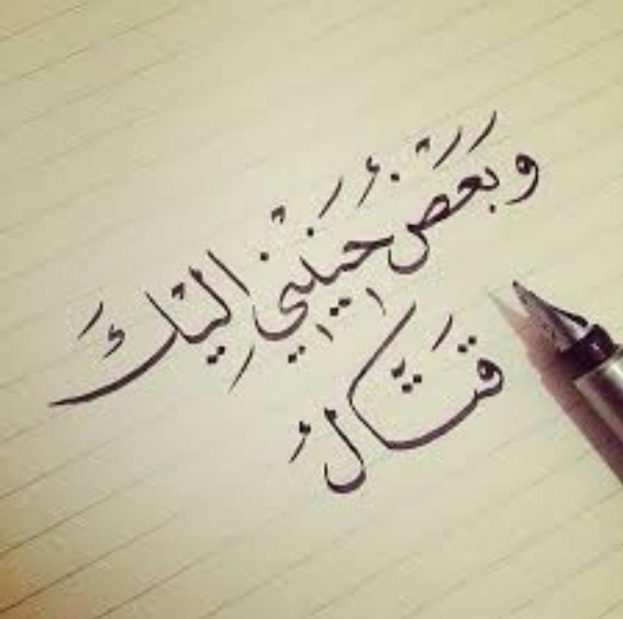 وَبَعَضُ حَنِينِي إِلَيْكَ
قَتَّالُ